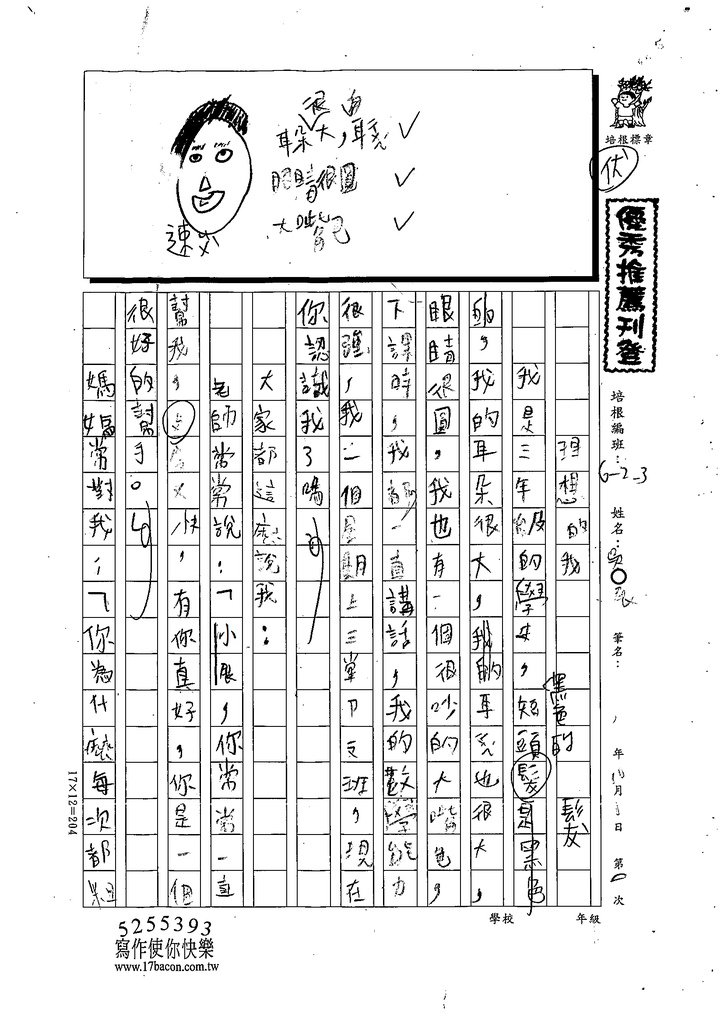 很自
耳朵大，耳
眼睛很圓
大嘴巴
速父
培根標章
優
優秀推薦刊登
培根編班：
6-2-3
姓名：
筆名：
年 月 日 第 次
理想的我
我是三年級的學生，短頭髮是黑色
黑色的
髮
的，我的耳朵很大，我的耳 也很大，
眼睛很圓，我也有一個很吵的大嘴巴，
下課時，我都一直講話，我的數學能力
很強，我一個星期上三堂 班，現在
你認識我了嗎
大家都這麼說我：
老師常常說：「小 ，你常常一直
幫我， ，有你真好，你是一個
很好的幫手。
媽媽常對我：「你為什麼每次都
17×12=204
學校 年級
5255393
寫作使你快樂
www.17bacon.com.tw